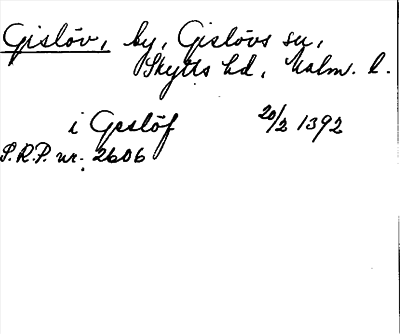 Gislöv, by, Gislövs sn,
Skytts hd, Malm. l.
i Geslöf 20/2 1392
S.R.P. nr. 2606